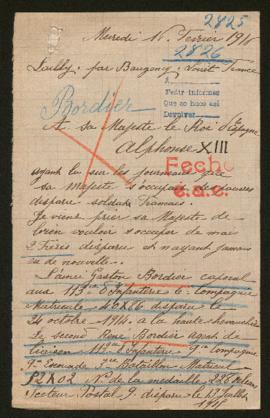 2825
Mercredi 16 Février 1916
2826
Lailly par Baugency Loiret France
Pedir informes
Que se haga así
Devolver
Bordier
A sa Majesté le Roi d'Espagne
Alphonse XIII
Fecho
e.a.c.
ayant lu sur les journaux que
sa Majesté s'occupait de plusieurs
disparu soldats Francais
Je viens prier sa Majesté de
bien vouloir s'occuper de mais
2 Frères disparu et n'ayant jamais
eu de nouvelle
L'ainée Gaston Bordier caporal
aux 113e d'Infanterie 6e Compagnie
Matricule disparu le
24 octobre 1914 a la haute chevauchée
Le second René Bordier agent de
liaison d'Infanterie 9e Compagnie
9e Escouade 3e Bataillon Matricule
P2K02 No de la medaille
Secteur Postal 9 disparu le 13 Juillet
1915